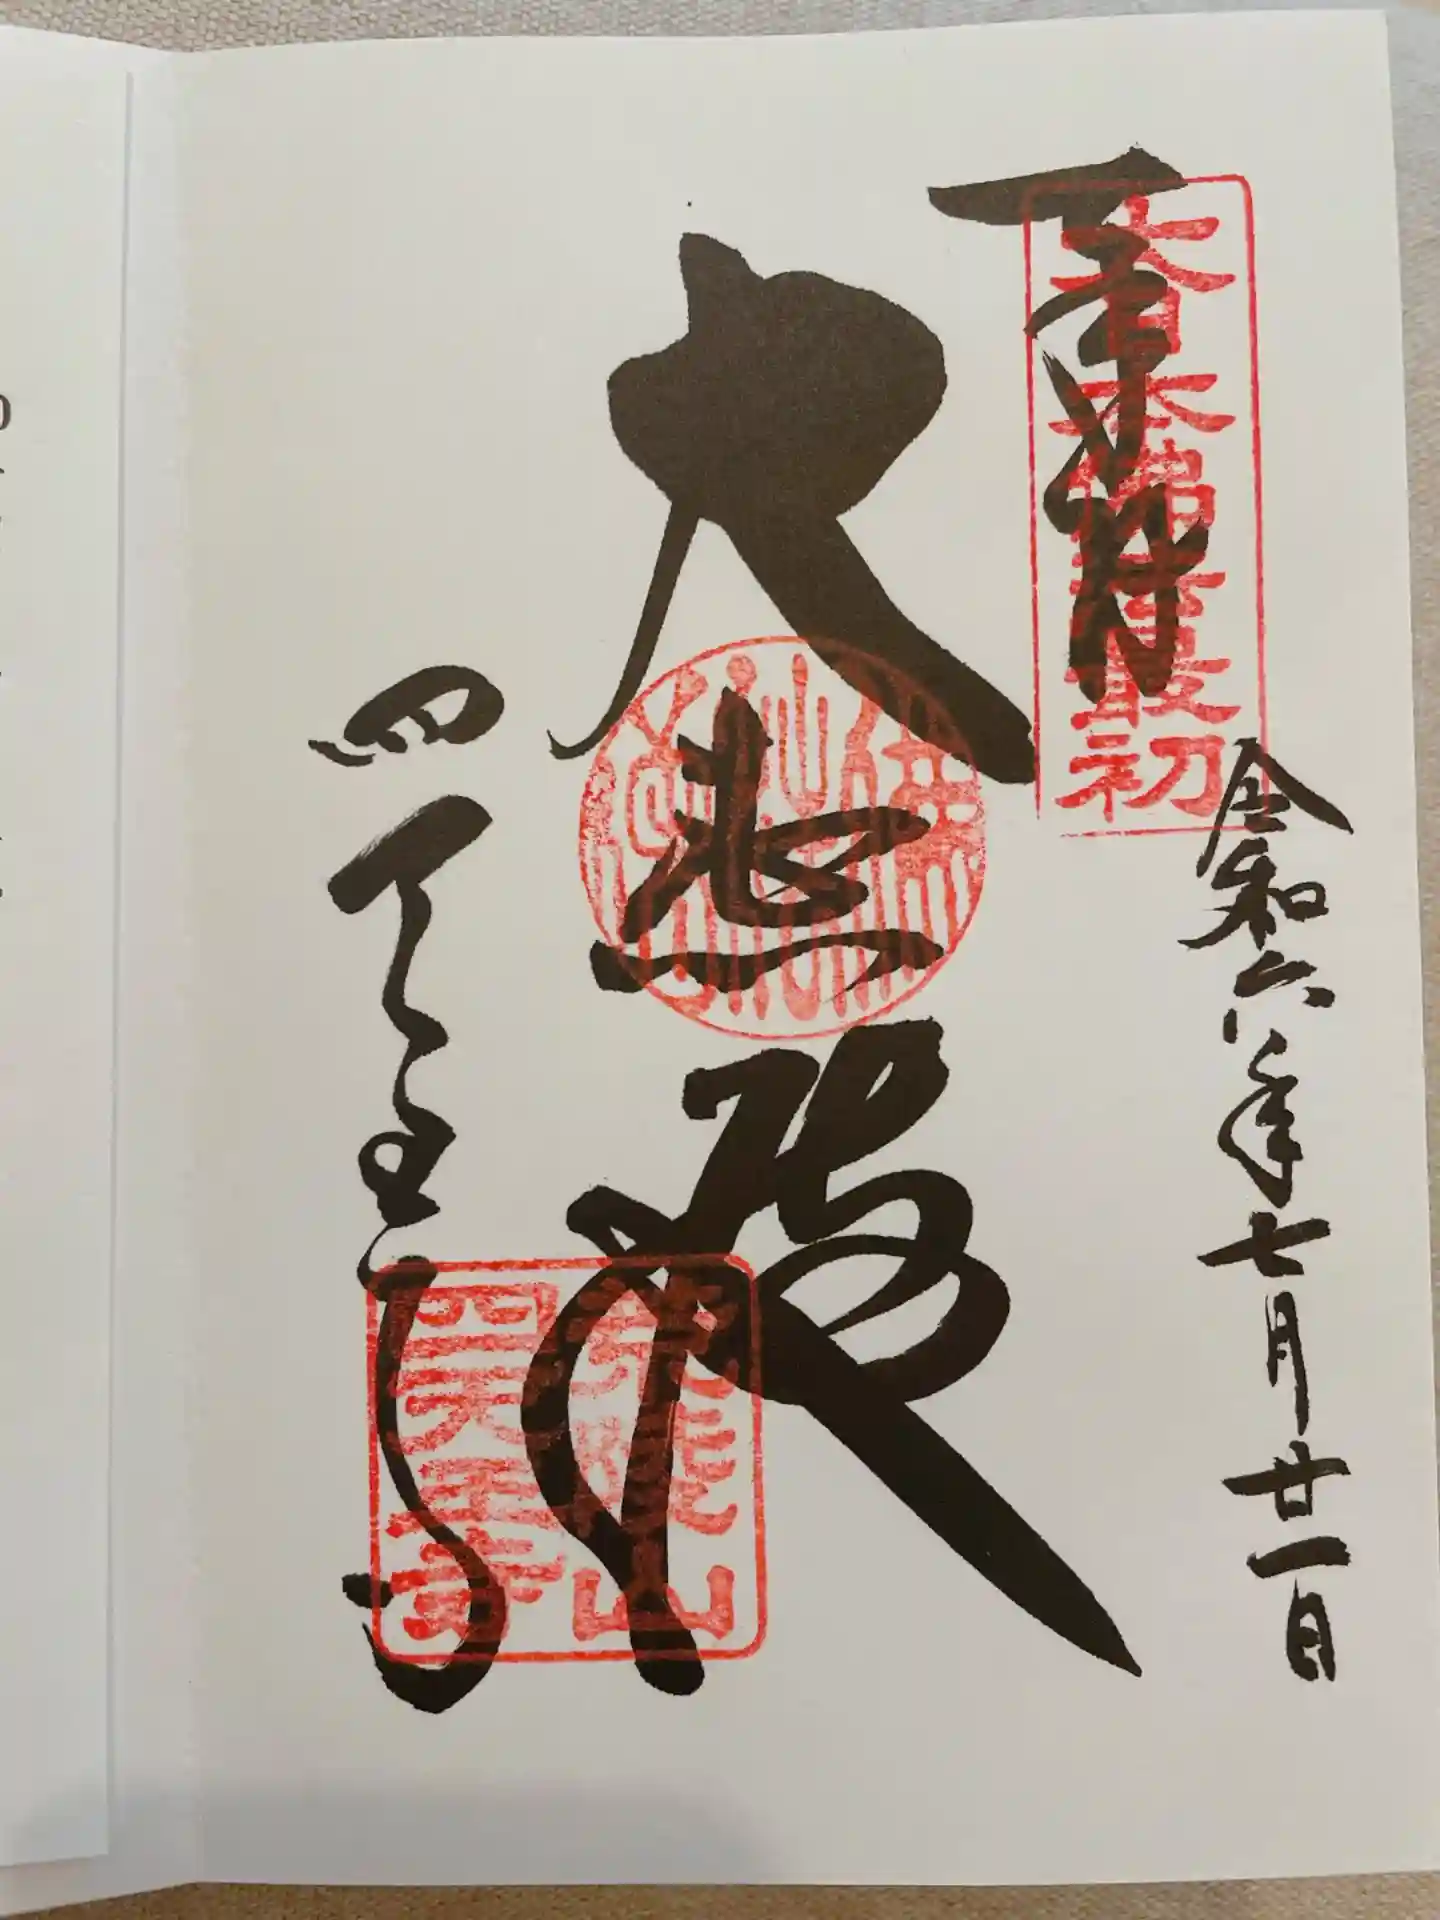 奉拝
大日本佛法最初
令和六年七月廿一日
大悲殿
四天王寺
荒陵山
四天王寺